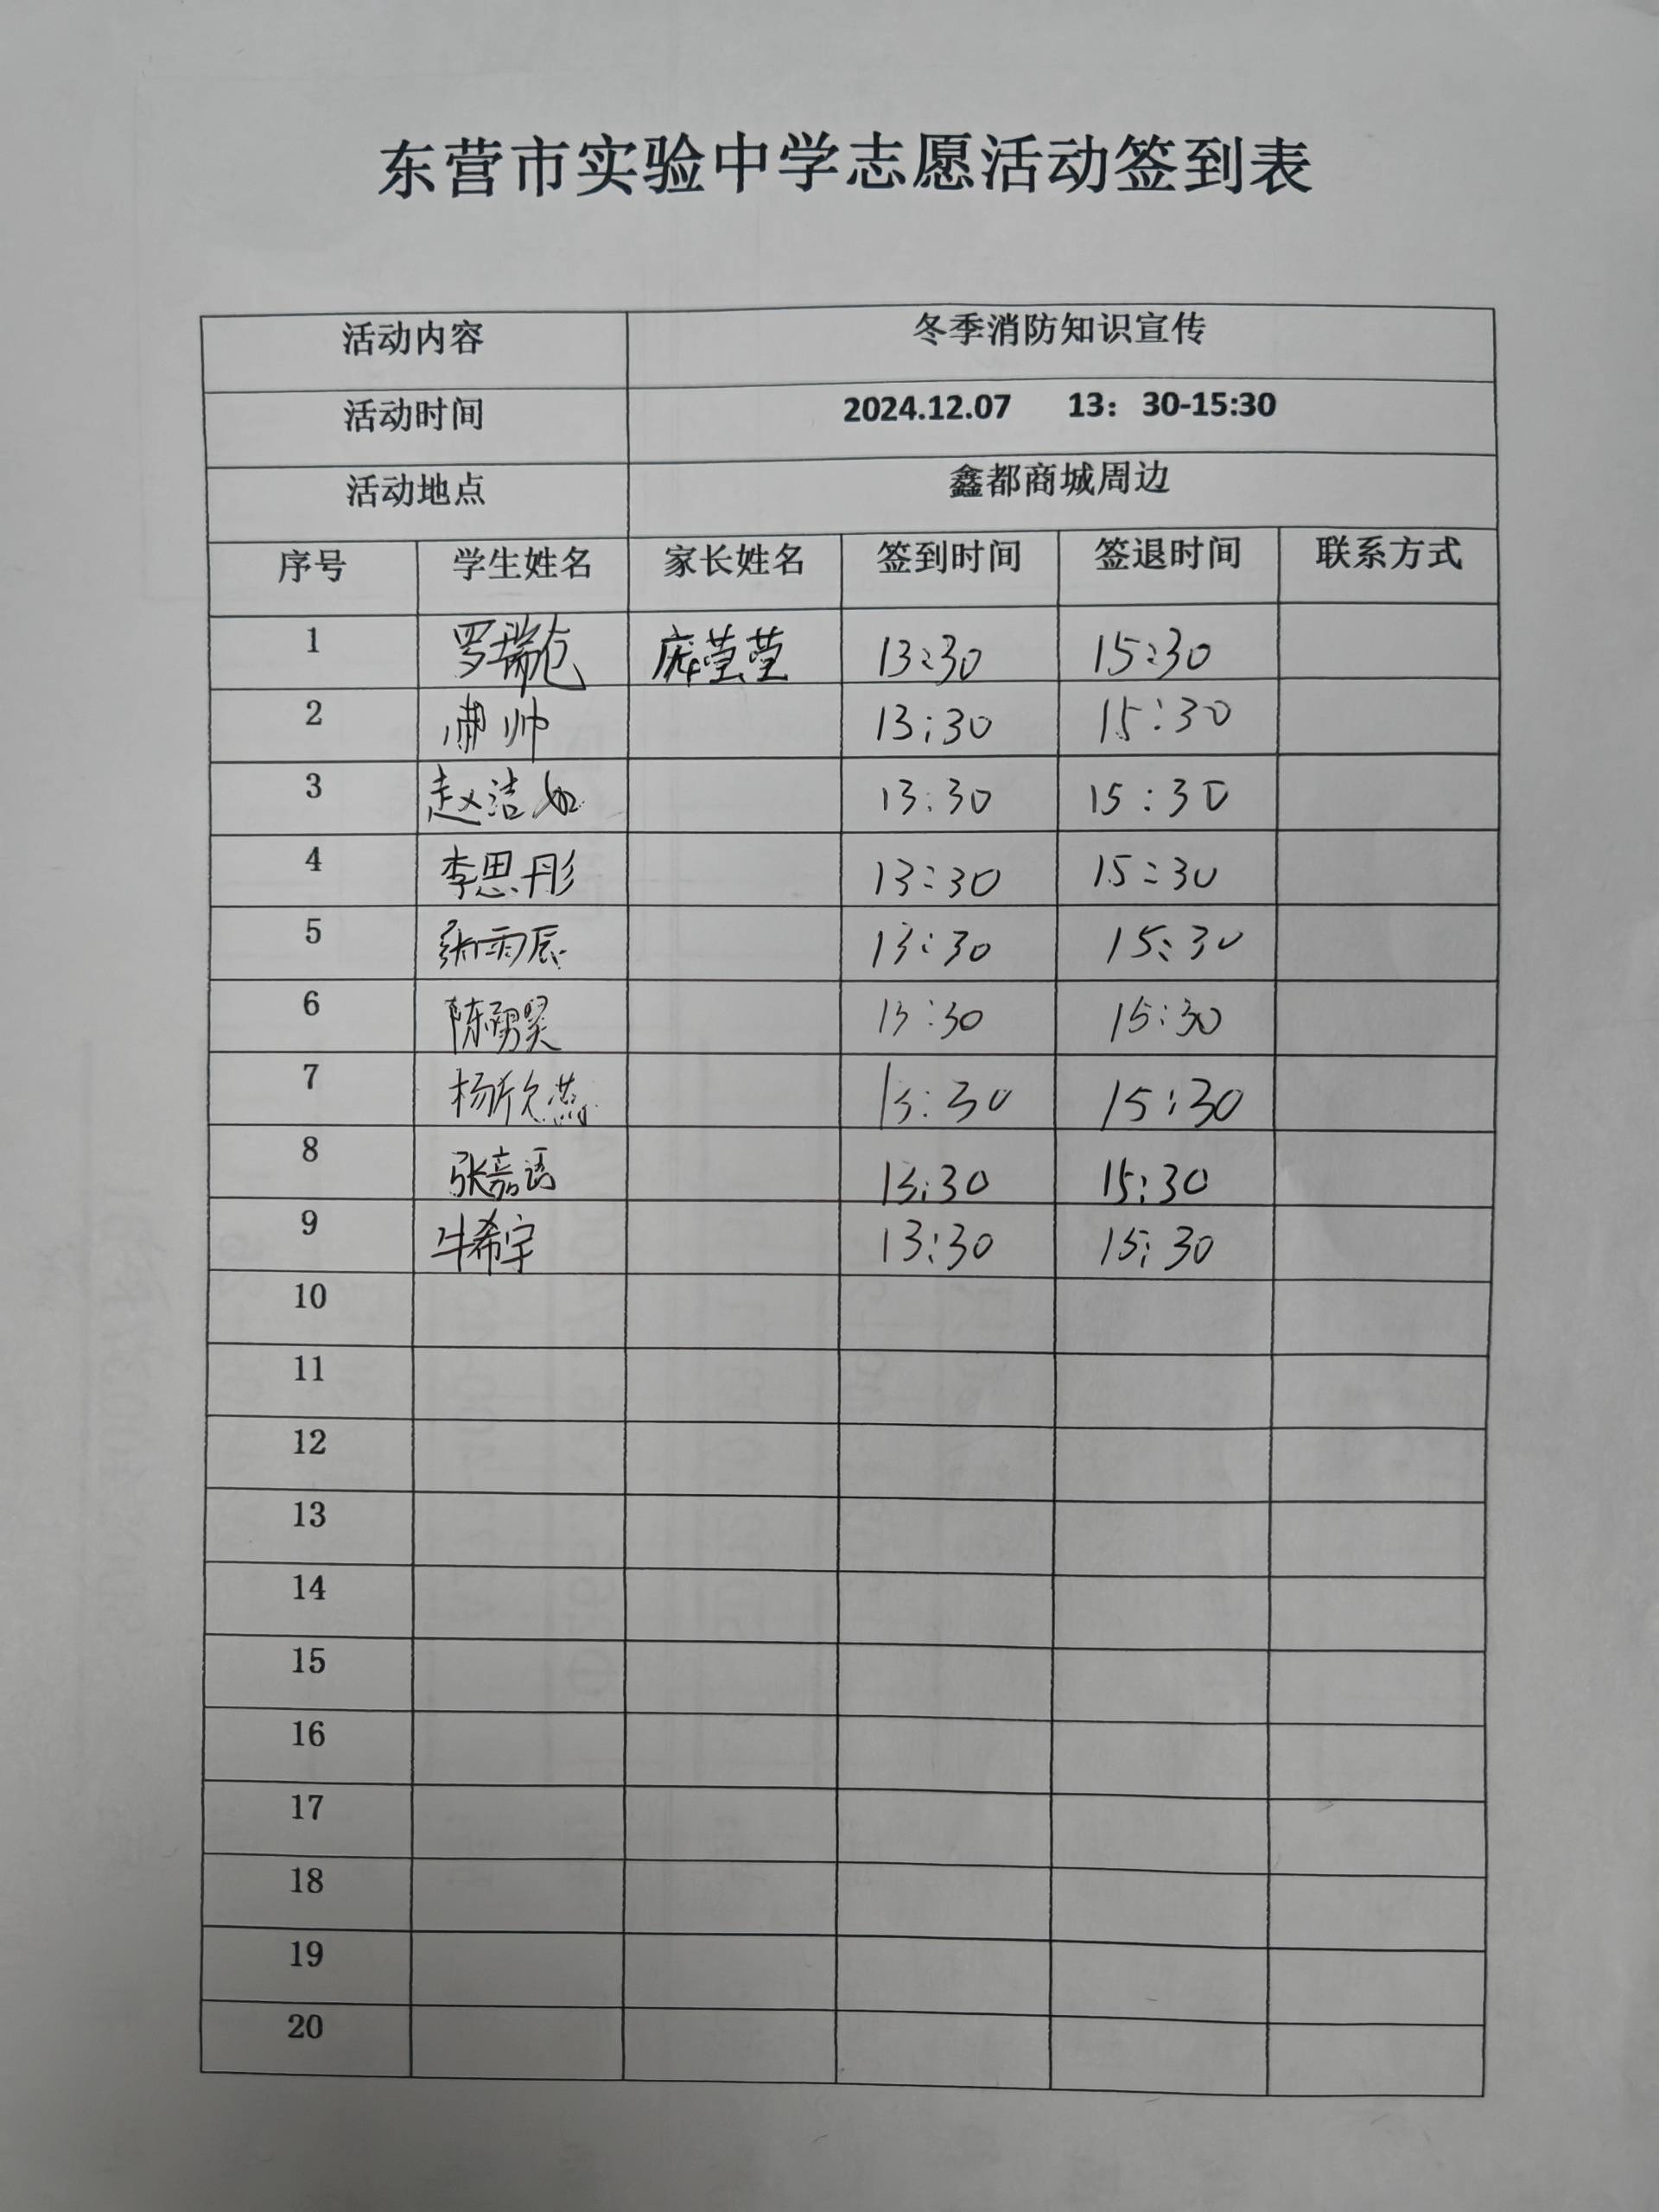 东营市实验中学志愿活动签到表
活动内容 冬季消防知识宣传
活动时间 2024.12.07 13：30-15:30
活动地点 鑫都商城周边
序号 学生姓名 家长姓名 签到时间 签退时间 联系方式
1 罗瑞 莹莹 13:30 15:30
2 帅 13:30 15:30
3 赵洁如 13:30 15:30
4 李思彤 13:30 15:30
5 张雨辰 13:30 15:30
6 陈勇昊 13:30 15:30
7 杨欣燕 13:30 15:30
8 张嘉语 13:30 15:30
9 牛希宇 13:30 15:30
10
11
12
13
14
15
16
17
18
19
20